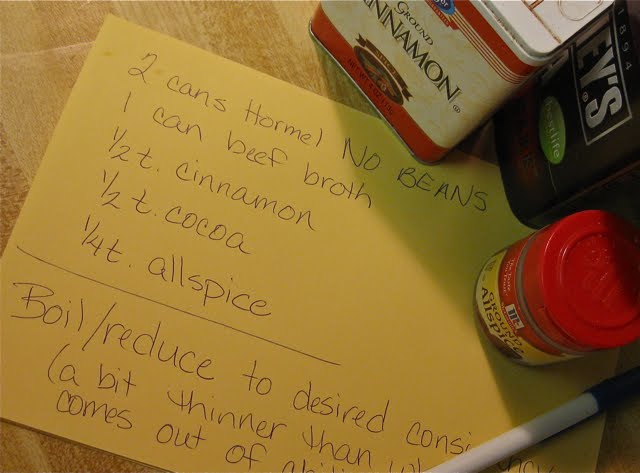 2 cans Hormel NO BEANS
1 can beef broth
1/2 t. cinnamon
1/2 t. cocoa
1/4 t. allspice
Boil/reduce to desired
(a bit thinner than
comes out of
GROUND
CINNAMON
EY'S
1894
GROUND
Allspice